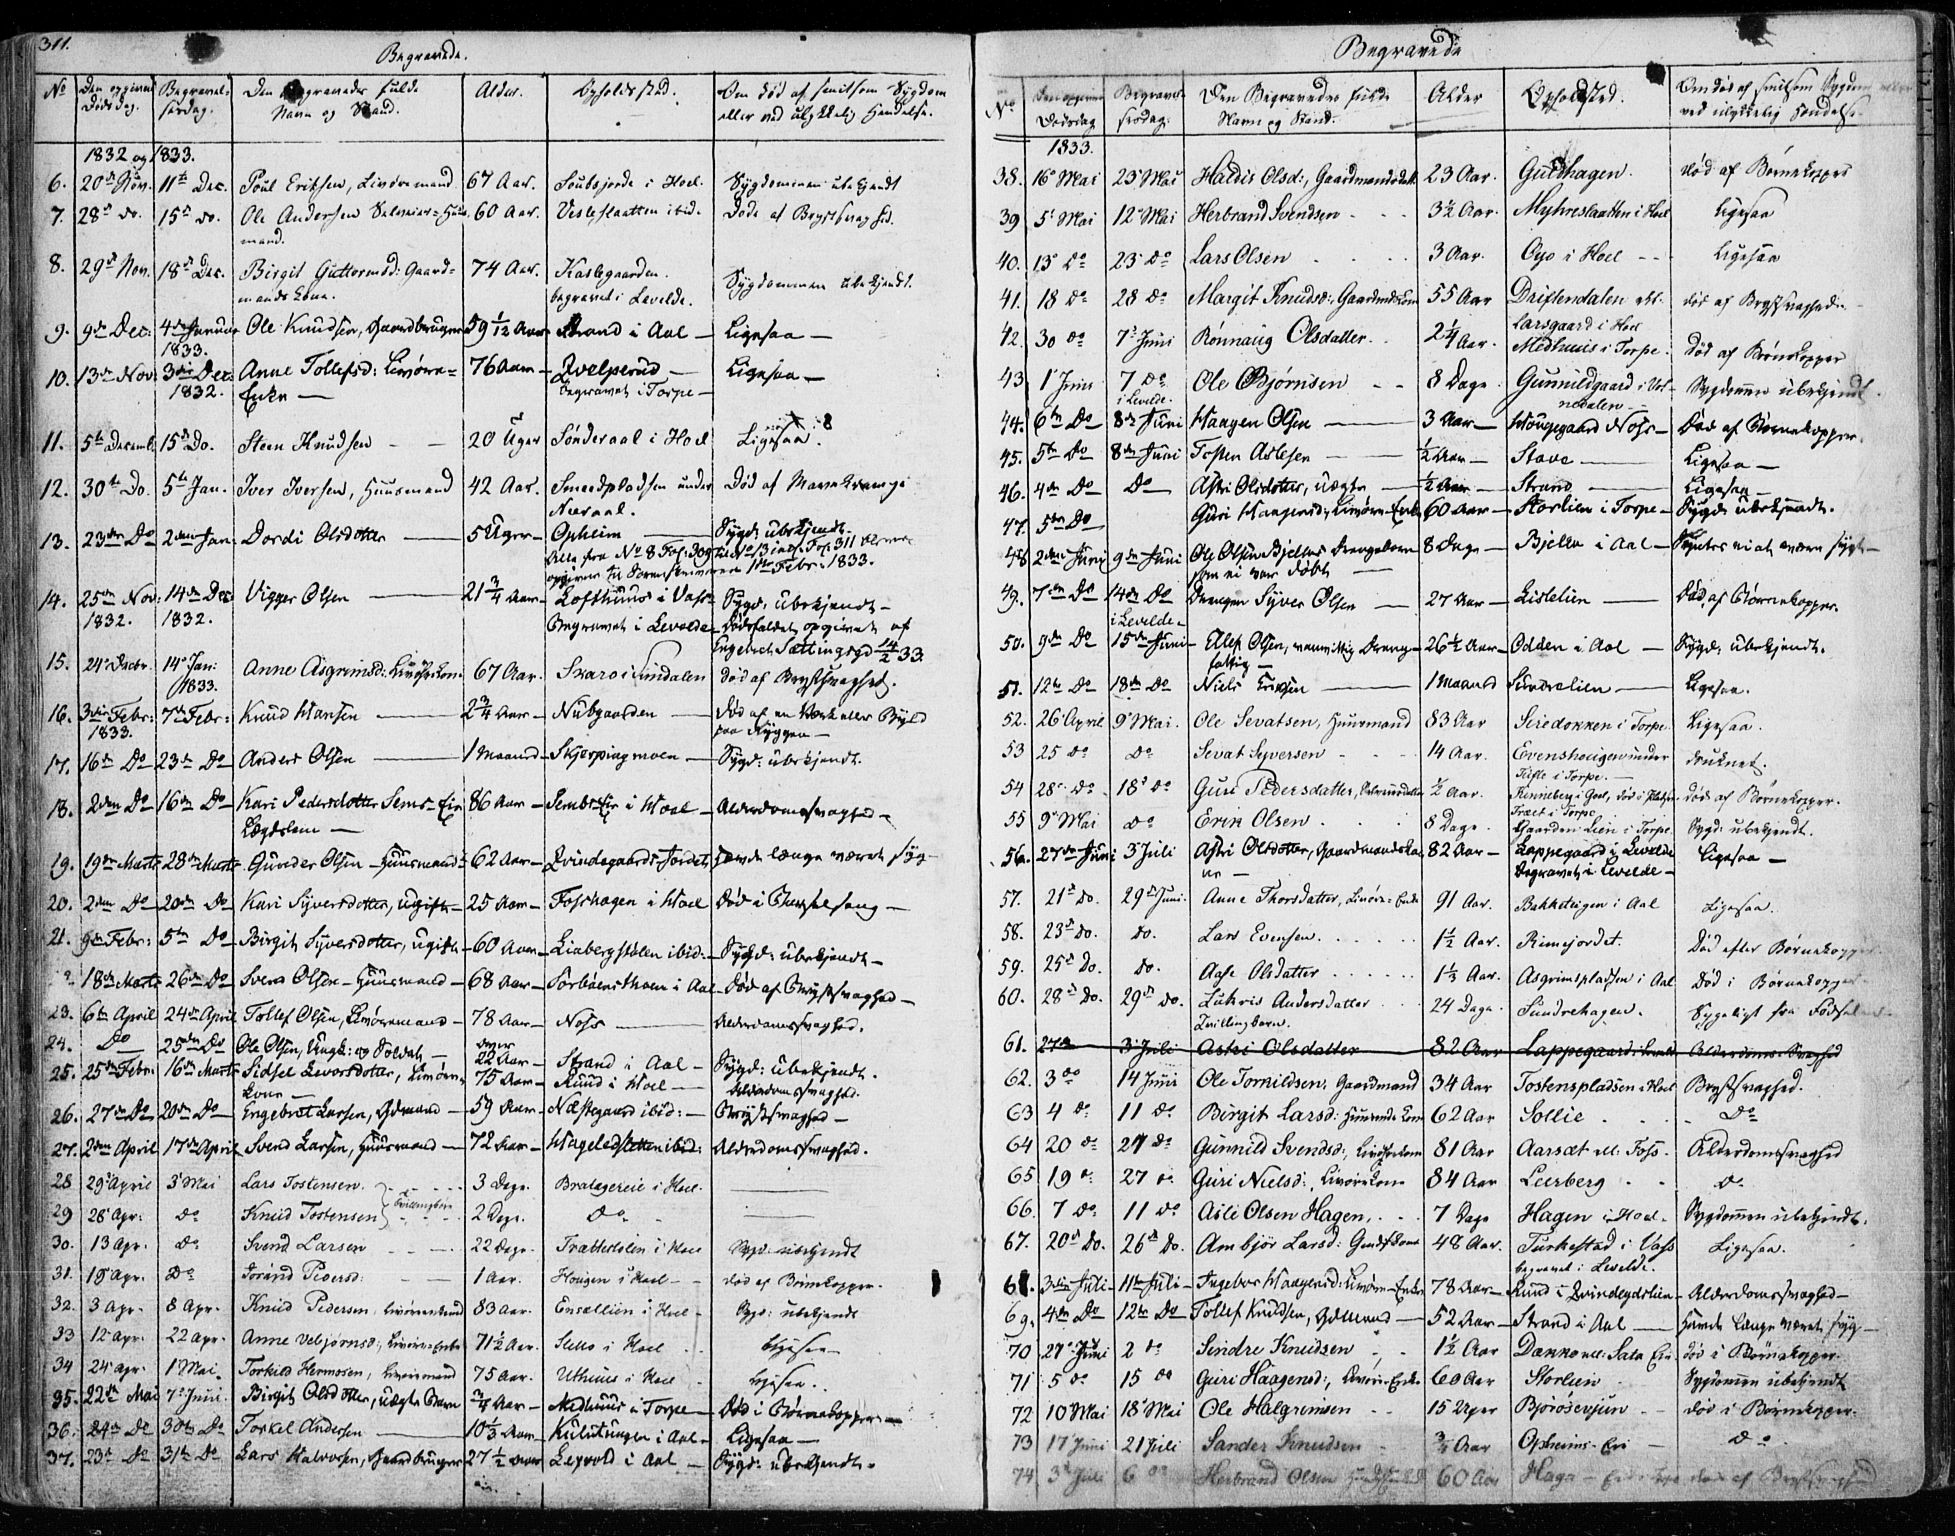 311.
Begravede.
No Den opgivne Dødsdag. Begravelsesdag. Den Begravedes fulde Navn og Stand. Alder. Opholdssted. Om død af smitsom Sygdom eller ved ulykkelig Hændelse.
1832 og 1833.
6. 20de Nov. 11te Dec. Poul Eriksen, Livøremand 67 Aar. i Hoel. Sygdommen ubekjendt
7. 28de do. 15de do. Ole Andersen 60 Aar. Vesleslaatten ibid. Døde af Brystsvaghed.
mand.
8. 29de Nov. 18de Dec. Birgit Guttormsd: Gaard= 74 Aar. Kaslegaarden. Sygdommen ubekjendt.
mandskone. begravet i Levelde.
9. 9de Dec: 4de Januar Ole Knudsen, Gaardbruger 59 1/12 Aar Strand i Aal — Ligesaa —
1833.
10. 13de Nov: 3die Dec: Anne Tollefsd: Livøre= 76 Aar — Qvelprud — Ligesaa —
1832. Enke — Begravet i Torpe —
11. 5te Decemb. 15de Do. Steen Knudsen 20 Uger Sønderaal i Hoel Ligesaa.
12. 30te Do. 5te Jan. Iver Iversen, Huusmand 42 Aar. Smedpladsen under Død af Mavekrampe
Neeraal.
13. 23de Do 2den Jan: Dordi Olsdotter 5 Uger — Opheim Sygd: ubekjendt.
Alle fra No 8 Fol. 309 til No 13 incl. Fol. 311 ere
opgivne til Sorenskriveren 1ste Febr: 1833.
14. 25de Nov: 14de Dec: Vigger Olsen 21 3/4 Aar — Lofthuus i Vats Sygd: ubekjendt —
1832. 1832. Begravet i Levelde — Dødsfaldet opgivet af
Engebret Sættingsgd 14/2 33.
15. 24de Decbr. 14de Jan: Anne Asgrimsd: Livørekone 67 Aar. Skaro i Sundalen død af Brystsvaghed.
1833.
16. 3die Febr: 7de Febr: Knud Hansen 2 3/4 Aar — Nubgaarden død af en Værk eller Byld
1833. paa Ryggen —
17. 16de Do 23de Do Anders Olsen 1 Maaned — Skjerpingmoen — Sygd: ubekjendt.
18. 2den Do 16de Do Kari Pedersdotter Sems=Eie 86 Aar — Sembs Eie i Hoel — Alderdomssvaghed —
Lægdslem —
19. 19de Marts 28de Marts Gunder Olsen — Huusmand — 62 Aar — Qvindegaards-Jordet, Havde længe været syg —
20. 2den Do 20de Do Kari Syversdotter, ugift — 25 Aar — Foshagen i Hoel Død i Barselseng —
21. 9de Febr: 5te Do Birgit Syversdotter, ugift — 60 Aar — Liabergstølen ibid: — Sygd: ubekjendt —
18de Marts 26de Do Svend Olsen — Huusmand — 68 Aar — i Aal — Død af Brystsvaghed —
23. 6te April 24de April Tollef Olsen, Livøremand — 78 Aar — Noss Alderdomssvaghed.
24. Do 25de Do Ole Olsen, Ungk: og Soldat — over 22 Aar — Strand i Aal — Sygd: ubekjendt.
25. 25de Febr: 16de Marts Sidsel Levorsdotter, Livøre= 75 Aar — Ruud i Hoel — Alderdomssvaghed.
kone —
26. 27de Do 20de Do Engebret Larsen, Gdmand — 59 Aar — Næstegaard ibid: — Brystsvaghed —
27. 2den April 17de April Svend Larsen, Huusmand — 72 Aar — Hageledsletten ibid: Alderdomssvaghed.
28 29 April 3 Mai Lars Tostensen. 3 Dage. Bratagereie i Hoel.
29 28 Apr: Do Knud Tostensen Tvillingbrn 2 Dage. Do
30. 13 Apr. Do Svend Larsen 22 Dage. Trættestølen i Hoel Sygd. ubekjendt
31. 19 Apr. Do Jørånd Pedersd: 1 Aar. Hougen i Hoel — død af Børnekopper.
32. 3 Apr. 8 Apr. Knud Pedersen, Livøremand 83 Aar. i Hoel — Sygd: ubekjendt
33 12 Apr. 22 Apr. Anne Vebjørnsd: Livøre=Enke 71 1/2 Aar. i Hoel Ligesaa
34 24 Apr. 1 Mai. Torkild Hermosen, Livøremand 75 Aar. Uthuus i Hoel Ligesaa.
35. 22de Mai 7 Juni. Birgit Olsdotter, uægte Barn 3/4 Aar — Medhuus i Torpe — Død i Børnekopper —
36. 24de Do 30te Do Torkel Andersen 10 1/3 Aar — i Aal — Ligesaa —
37. 23de Do 31te Do Lars Halvorsen, Gaardbruger 27 1/2 Aar Leqvold i Aal — Sygd: ubekjendt.
Begravede
No Den opgivne Dødsdag Begravelsesdag: Den Begravedes fulde Navn og Stand. Alder Opholdsted. Om død af smitsom Sygdom eller ved ulykkelig Hændelse.
1833.
38. 16 Mai 23 Mai Haldis Olsd:, Gaardmandsdatt 23 Aar. Guldhagen. død af Børnekopper
39 5 Mai 12 Mai Herbrand Svendsen 3 1/2 Aar. Myhreslaatten i Hoel Ligesaa
40. 13 Do 23 Do Lars Olsen 3 Aar. Oyo i Hoel Ligesaa
41. 18 Do 28 Do Margit Knudsd:, Gaardmdskone 55 Aar Driftendalen død af Brystsvaghed.
Larsgaard i Hoel
42. 30 Do 7 Juni Rønnaug Olsdatter. 2 1/4 Aar. Medhuus i Torpe. død af Børnekopper
43 1 Juni 7 Do Ole Bjørnsen 8 Dage. Gunnildgaard i Vats Sygdommen ubekjendt.
i Levelde. nedalen —
44. 6te Do 8de Juni Haagen Olsen 3 Aar — Hougegaard Noss — Død af Børnekopper.
45. 5te Do 8de Juni Tosten Aslesen ½ Aar — Stave Ligesaa —
46. 4de Do Do — Astri Olsdotter, uægte ½ Aar — Strand Ligesaa —
47. 5te Do Guri Haagensd:, Livøre=Enke 60 Aar — Storlien i Torpe — Sygd: ubekjendt.
48 2den Juni 9de Juni Ole Olsen Bjellas Drengebarn 8 Dage — Bjella i Aal — Syntes ei at være sygt —
som ei var døbt
49. 7de Do 14de Do Drengen Syver Olsen 27 Aar — Lislelien Død af Børnekopper.
i Levelde —
50. 9de Do 15de Juni — Ellef Olsen, vanvittig Dreng — 26 ½ Aar — Odden i Aal — Sygd: ubekjendt.
fattig —
51. 12te Do 18de Do Niels Eriksen 1 Maaned Sundrelien Ligesaa.
52. 26 April 9 Mai. Ole Sevatsen, Huusmand 83 Aar Siredokken i Torpe. Ligesaa.
53 25 Do Do Sevat Syversen 14 Aar. Evenshougen under druknet.
Tufte i Torpe. —
54 28 Do 18 Do Guri Pedersdatter, ½ Aar. Renneberg i Goel, død i Pladsen død af Børnekopper.
Træet i Torpe.
55 9 Mai Do Erik Olsen 8 Dage. Gaarden Lien i Torpe Sygd: ubekjendt.
56. 27de Juni 3 Juli Astri Olsdotter, Gaardmandsko 82 Aar — Lappegaard i Levelde Ligesaa —
ne — Begravet i Levelde —
57. 21de Do. 29de Juni. Anne Thorsdatter, Livøre=Enke 91 Aar. Bakketeigen i Aal Ligesaa.
58. 23de Do. Do. Lars Evensen. 1 ½ Aar. Rimejordet. Død efter Børnekopper.
59. 25de Do. Do. Aase Olsdatter 1 ⅓ Aar. Asgrimspladsen i Aal Død i Børnekopper.
60. 28de Do. 29de Do. Lukris Andersdatter 24 Dage. Sundrehagen. Sygeligt fra Fødselen.
Tvillingbarn.
61. 27de 3 Juli Astri Olsdatter 82 Aar Lappegaard i Levelde Alderdoms Svaghed
62. 3 Do 14 Juni Ole Tomildsen, Gaardmand 34 Aar Tostenspladsen i Hoel Brystsvaghed.
63 4 Do 11 Do Birgit Larsd: Huusmands Kone 62 Aar Sollie Do
64 20 Do 27 Do Gunnild Svendsd:, Livørekone 81 Aar Aarsæt ell: Foss. Alderdomssvaghed
65 19 Do 27 Do Guri Nielsd:, Livørekone 84 Aar Leerberg Do
66. 7 Do. 11 Do Asle Olsen Hagen, 7 Dage Hagen i Hoel. Sygdommen ubekjendt.
67. 20de Do. 26de Do. Ambjør Larsd: 48 Aar. Turkestad i Vats Ligesaa.
begravet i Levelde.
68. 3die Juli — 11te Juli — Ingebor Haagensd: Livøre=Enke 78 Aar — Ruud i Qvindegdslien — Alderdomssvaghed —
69. 4de Do 12te Do Tollef Knudsen, Gdmand — 52 Aar — Strand i Aal — Havde længe været syg —
70 27 Juni 2 Do Sindre Knudsen 1½ Aar død i Børnekopper.
71 5 Do 15 Do Guri Haagensd:, Livøre=Enke 60 Aar Storlien Sygdommen ubekjendt
72 10 Mai 18 Mai Ole Halgrimsen 15 Uger Bjørøsevjun død i Børnekopper.
73 17 Juni 21 Juli Sander Knudsen ¾ Aar Opheims-Eie Do
74 3 Juli 6 Do Herbrand Olsen 60 Aar Haga død af Brystsvaghed